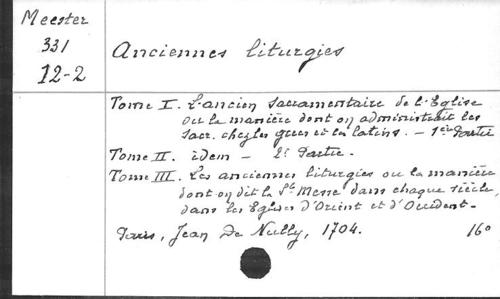 Meester
331
12-2
Anciennes liturgies
Tome I. L'ancien sacramentaire de l'Eglise
ou la manière dont on administrait les
Sacr. chez les grecs et les latins. - 1ère Partie
Tome II. idem - 2e Partie.
Tome III. Les anciennes liturgies ou la manière
dont on dit la Ste Messe dans chaque siècle,
dans les Eglises d'Orient et d'Occident.
Paris, Jean De Nully, 1704. 16°